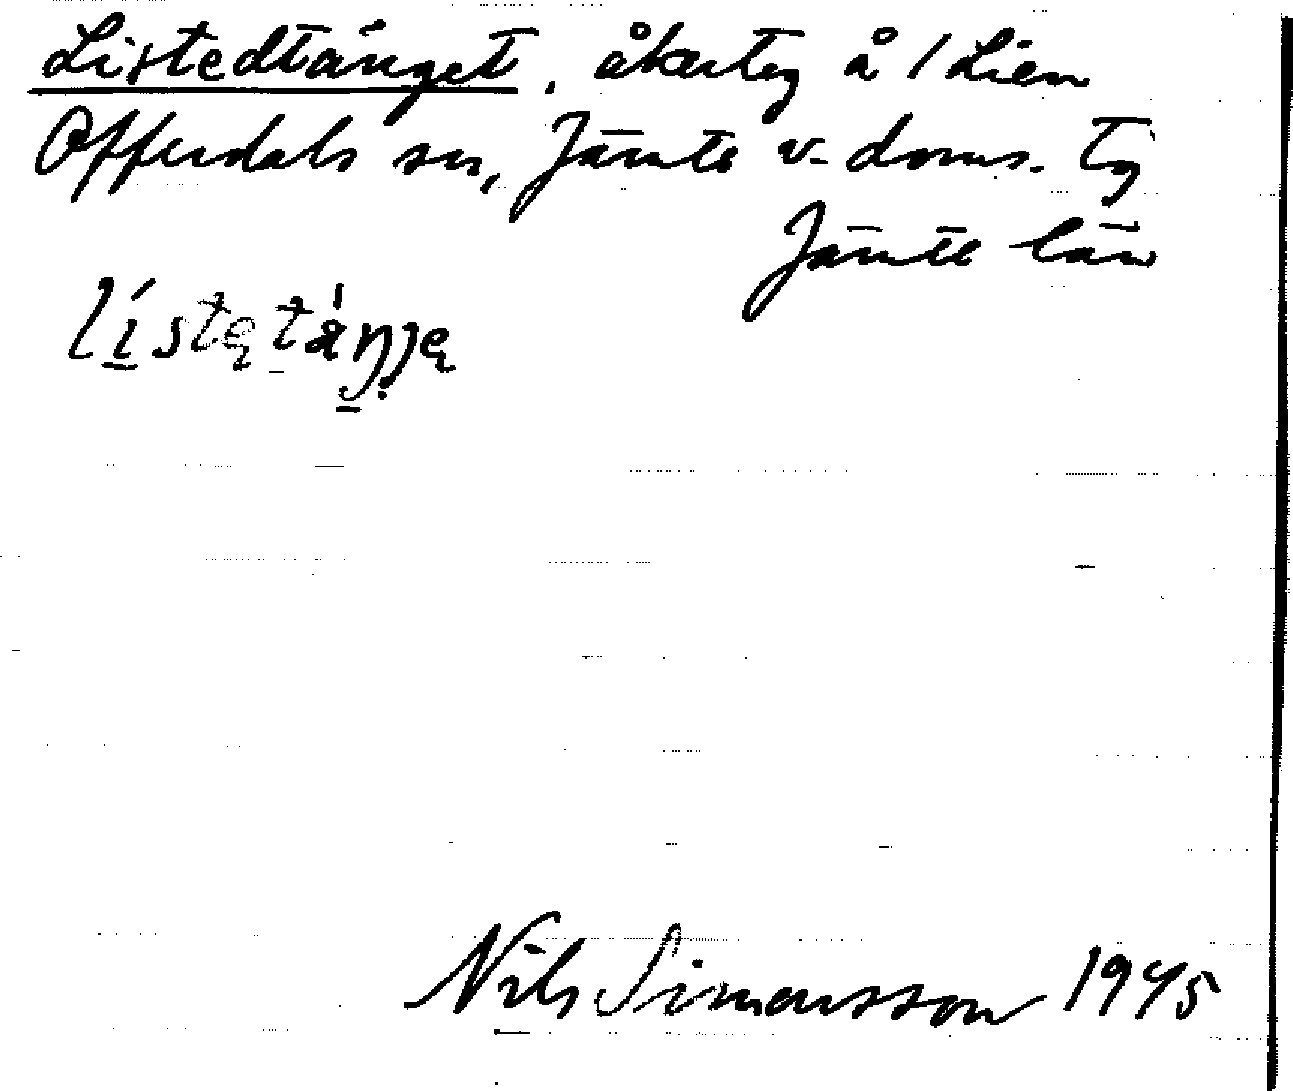 Listedtänget, åkerteg å 1 Lien
Offerdals sn, Jämts v. doms. tg
Jämtl län
Nils Simonsson 1945